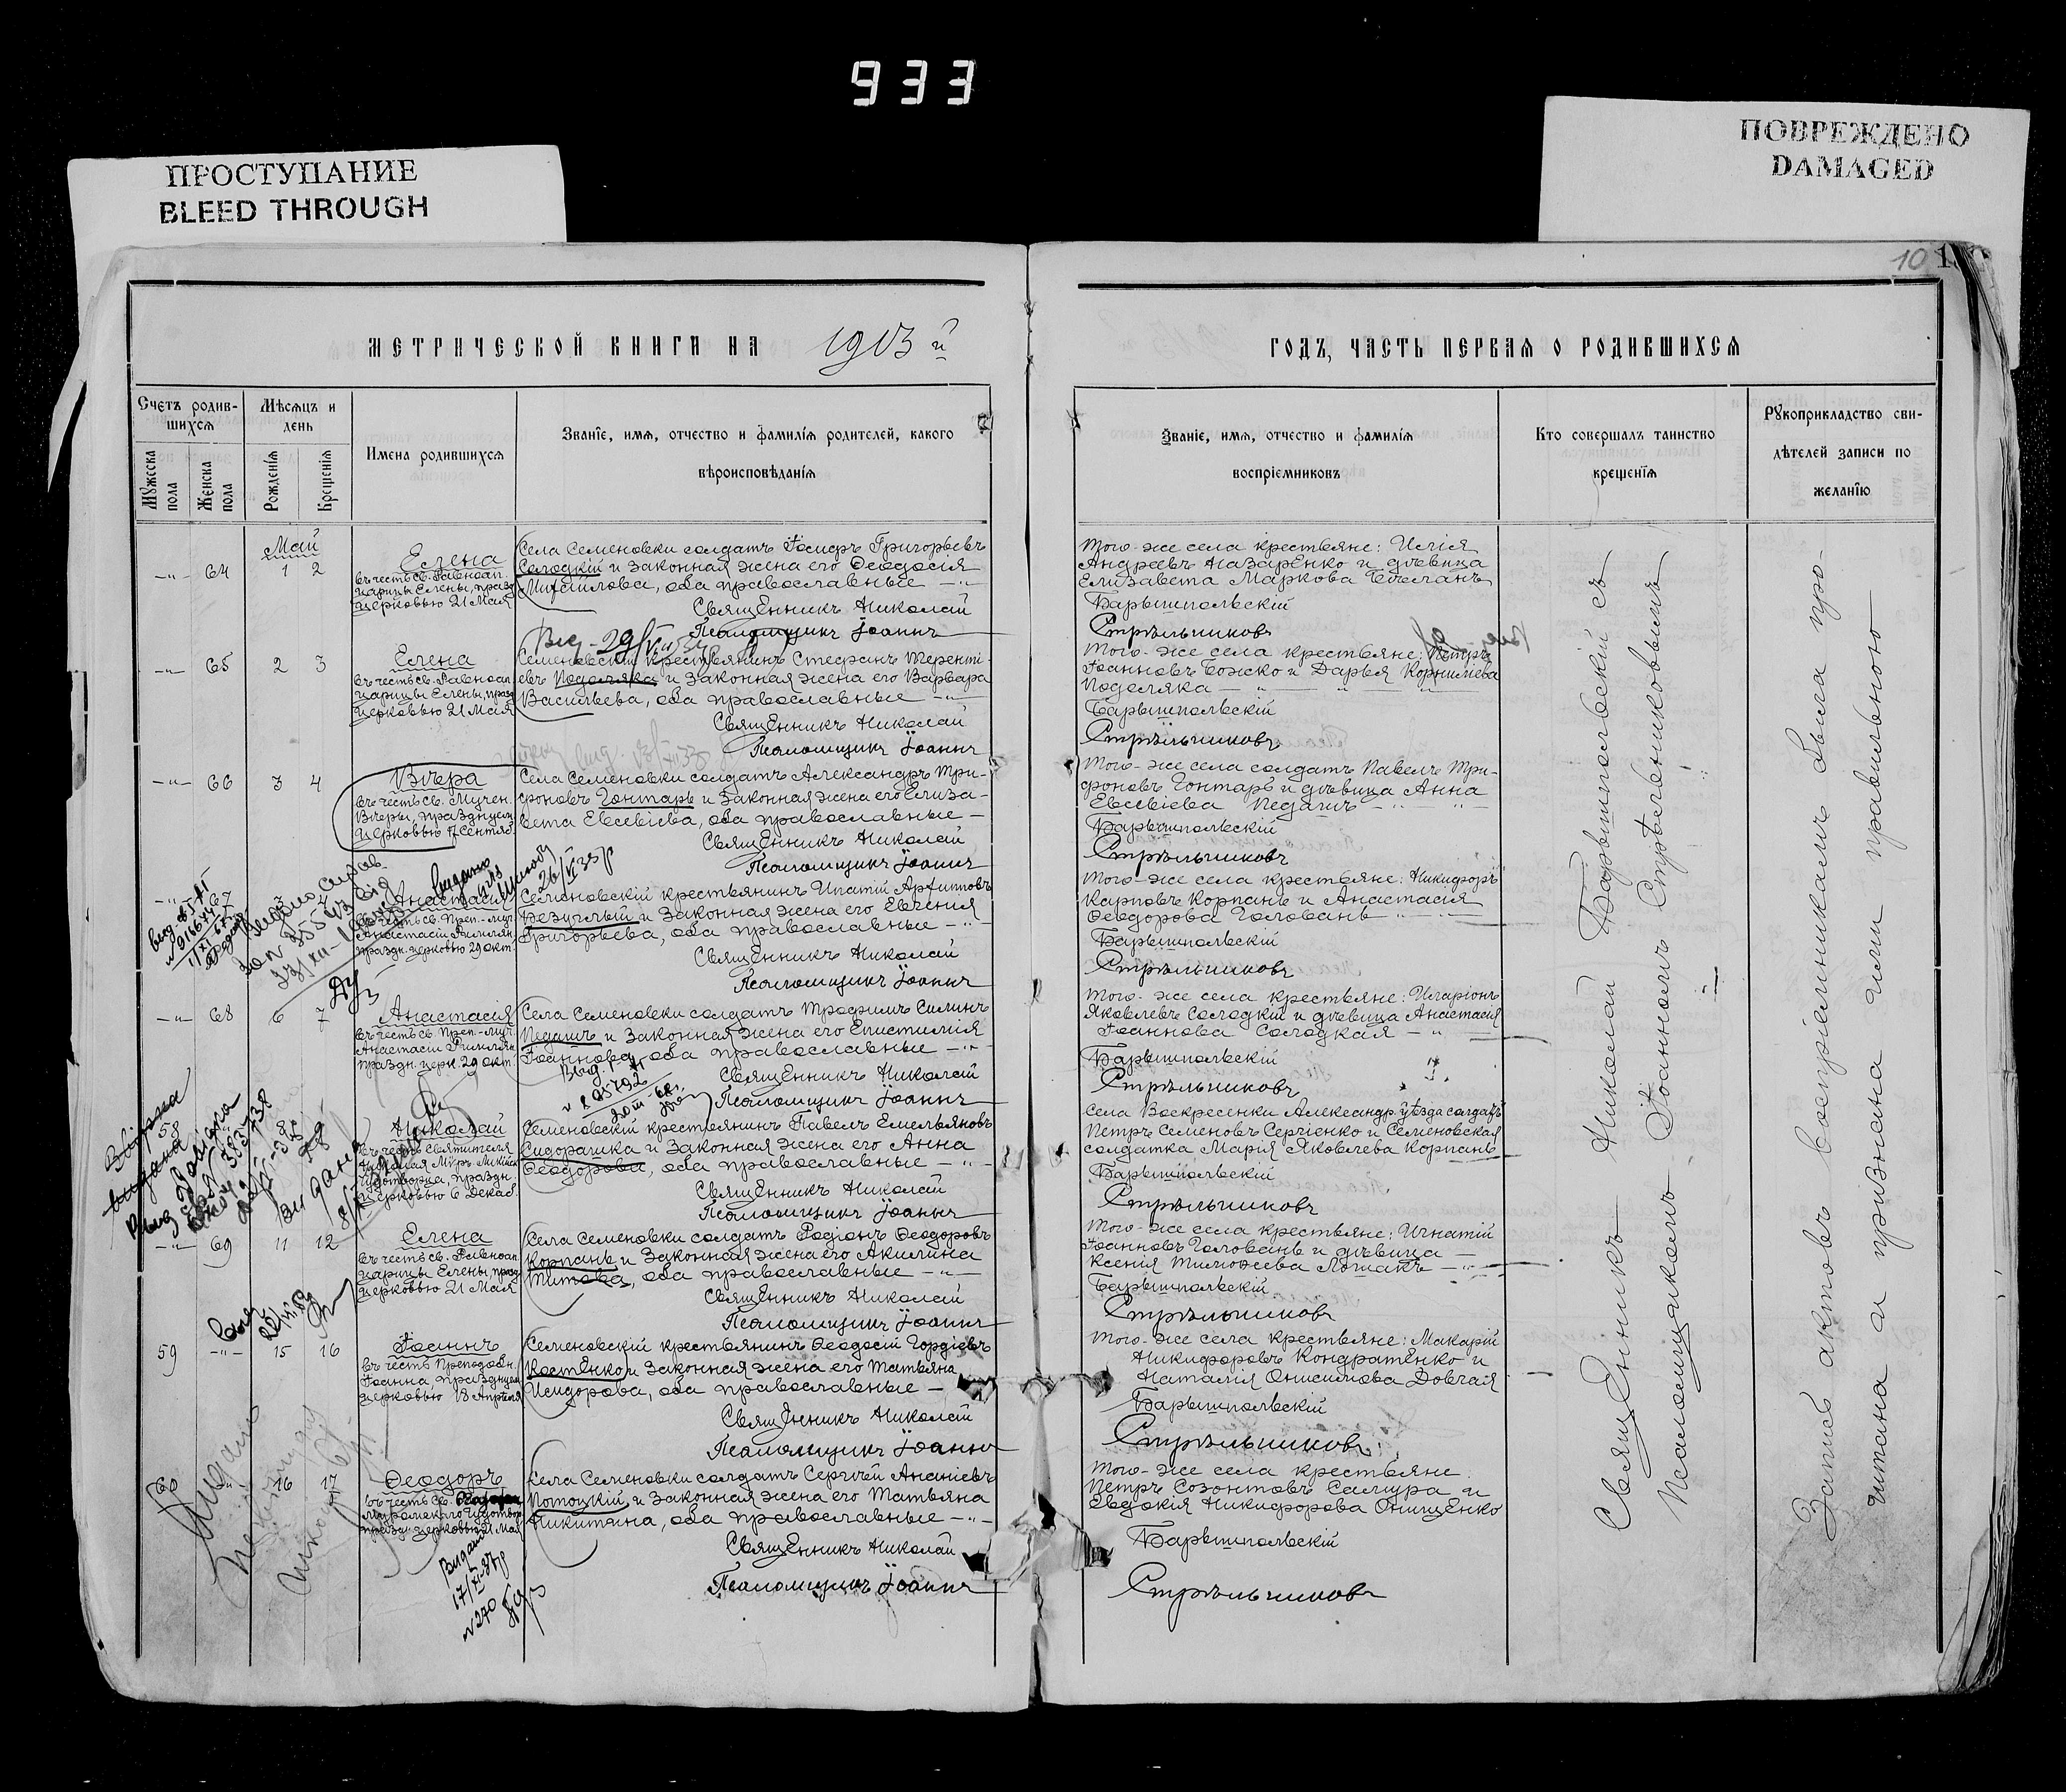 933
ПРОСТУПАНИЕ
BLEED THROUGH
ПОВРЕЖДЕНО
DAMAGED
10
МЕТРИЧЕСКОЙ КНИГИ НА 1913 й
ГОДЪ, ЧАСТЬ ПЕРВАЯ О РОДИВШИХСЯ
Счетъ родив-
шихся
Мужеска
пола
Женска
пола
Мѣсяцъ и
день
Рожденія
Крещенія
Имена родившихся
Званіе, имя, отчество и фамилія родителей, какого
вѣроисповѣданія
Званіе, имя, отчество и фамилія
воспріемниковъ
Кто совершалъ таинство
крещенія
Рукоприкладство сви-
дѣтелей записи по
желанію
Май
64 1 2
Елена
въ честь св. Равноап.
царицы Елены, празд.
церковью 21 Мая
Села Семеновки солдатъ Іосифъ Григорьевъ
Солодкій и законная жена его Ѳеодосія
Михайлова, оба православные
Священникъ Николай
Псаломщикъ Іоаннъ
Того-же села крестьяне: Илія
Андреевъ Назаренко и дѣвица
Елизавета Маркова
Барышпольскій
Стрѣльниковъ
65 2 3
Елена
въ честь св. Равноап.
царицы Елены, празд.
церковью 21 Мая
Семеновскій крестьянинъ Стефанъ Теренті-
евъ Поделяка и законная жена его Варвара
Васильева, оба православные
Священникъ Николай
Псаломщикъ Іоаннъ
Того-же села крестьяне: Петръ
Іоанновъ Божко и Дарья Корниліева
Поделяка
Барышпольскій
Стрѣльниковъ
66 3 4
Вѣра
въ честь св. Мучен.
Вѣры, празднуем.
церковью 17 Сентяб.
Села Семеновки солдатъ Александръ Три-
фоновъ Гонтарь и законная жена его Елиза-
вета Евсевіева, оба православные
Священникъ Николай
Псаломщикъ Іоаннъ
Того-же села солдатъ Павелъ Три-
фоновъ Гонтарь и дѣвица Анна
Евсевіева Педашъ
Барышпольскій
Стрѣльниковъ
67
Анастасія
въ честь св. Преп.-муч.
Анастасіи Римлян.
праздн. церковью 29 окт.
Семеновскій крестьянинъ Ипатій Архиповъ
Безуглый и законная жена его Евгенія
Григорьева, оба православные
Священникъ Николай
Псаломщикъ Іоаннъ
Того-же села крестьяне: Никифоръ
Карповъ Корпань и Анастасія
Ѳеодорова Головань
Барышпольскій
Стрѣльниковъ
68 6 7
Анастасія
въ честь св. Преп.-муч.
Анастасіи Римлян.
праздн. церк. 29 окт.
Села Семеновки солдатъ Трофимъ Силинъ
Педашъ и законная жена его Епистимія
Іоаннова, оба православные
Священникъ Николай
Псаломщикъ Іоаннъ
Того-же села крестьяне: Иларіонъ
Яковлевъ Солодкій и дѣвица Анастасія
Іоаннова Солодкая
Барышпольскій
Стрѣльниковъ
58
Николай
въ честь Святителя
Николая Мѵръ Ликійск.
чудотворца, праздн.
церковью 6 Декаб.
Семеновскій крестьянинъ Павелъ Емельяновъ
Сидорашка и законная жена его Анна
Ѳеодорова, оба православные
Священникъ Николай
Псаломщикъ Іоаннъ
Села Воскресенки Александр. уѣзда солдатъ
Петръ Семеновъ Сергіенко и Семеновская
солдатка Марія Яковлева Корпань
Барышпольскій
Стрѣльниковъ
69 11 12
Елена
въ честь св. Равноап.
царицы Елены, празд.
церковью 21 Мая
Села Семеновки солдатъ Родіонъ Ѳеодоровъ
Корпань и законная жена его Акилина
Титова, оба православные
Священникъ Николай
Псаломщикъ Іоаннъ
Того-же села крестьяне: Игнатій
Іоанновъ Головань и дѣвица
Ксенія Тимоѳеева Лошакъ
Барышпольскій
Стрѣльниковъ
59 15 16
Іоаннъ
въ честь Преподобн.
Іоанна, празднуем.
церковью 18 Апрѣля
Семеновскій крестьянинъ Ѳеодосій Гордіевъ
Костенко и законная жена его Татьяна
Исидорова, оба православные
Священникъ Николай
Псаломщикъ Іоаннъ
Того-же села крестьяне: Макарій
Никифоровъ Кондратенко и
Наталія Онисимова Довгая
Барышпольскій
Стрѣльниковъ
60 16 17
Ѳеодоръ
въ честь св.
Муромскаго чудотвор.
празд. церковью 21 Мая
Села Семеновки солдатъ Сергѣй Ананіевъ
Потоцкій и законная жена его Татьяна
Никитина, оба православные
Священникъ Николай
Псаломщикъ Іоаннъ
Того-же села крестьяне
Петръ Созонтовъ Сапура и
Евдокія Никифорова Онищенко
Барышпольскій
Стрѣльниковъ
Видана
17/XI-87р
№270
Священникъ Николай Барышпольскій съ
Псаломщикомъ Іоанномъ Стрѣльниковымъ
Запись актовъ воспріемникамъ была про-
читана и признана ими правильною